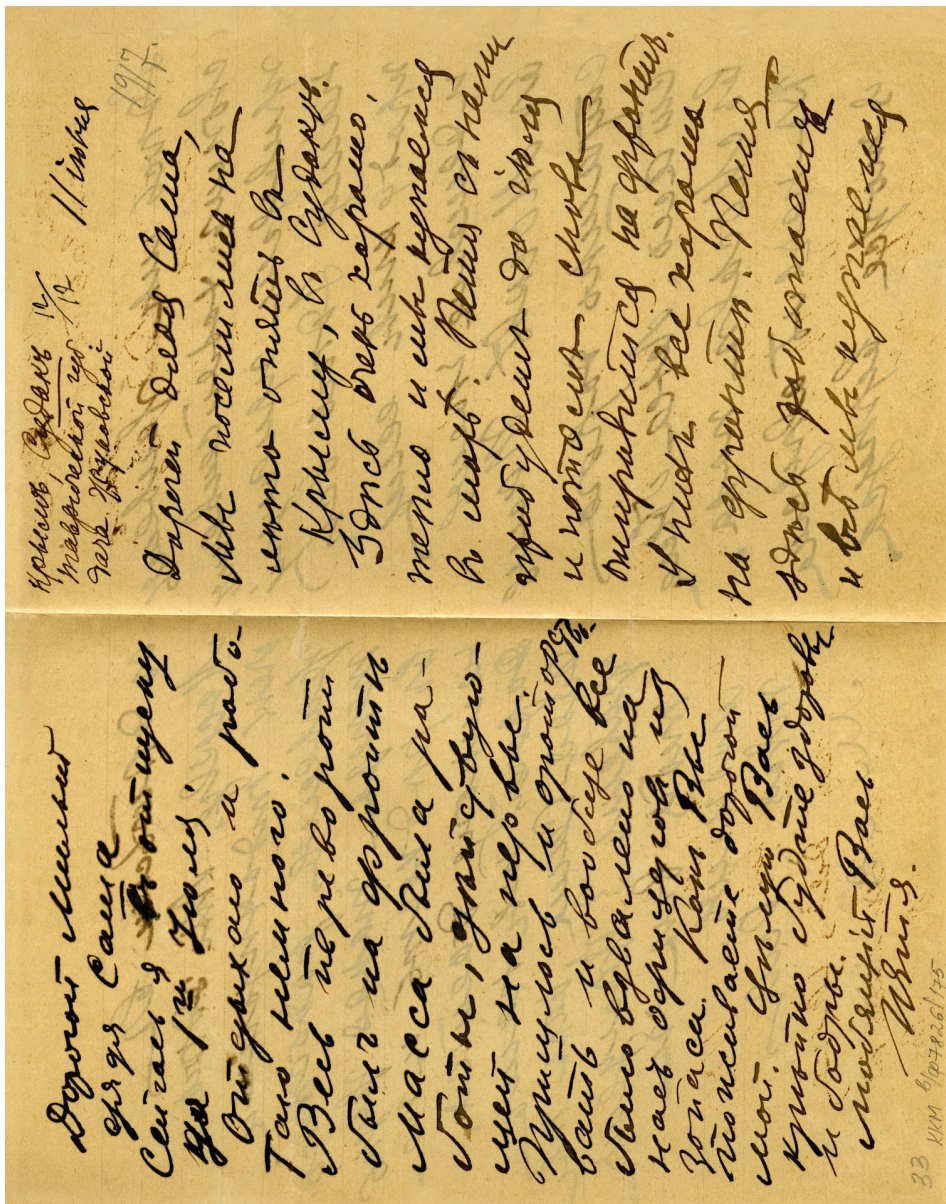 Крымъ Судакъ 12/17
Таврической губ
дача Жуковской
11 іюня
1917 г.
Дорогой дядя Саша,
мы поселились на
лето опять въ
Крыму, въ Судакѣ.
Здѣсь очень хорошо,
тепло и мы купаемся
въ морѣ. Петя съ нами
пробудетъ до іюля
и потомъ снова
отправится на фронтъ.
У нихъ все хорошо
на фронтѣ. Петя
здѣсь
и мы
Дорогой милый
дядя Саша
Сейчасъ я въ отпуску
до 1го Іюля.
Отдыхаю и рабо-
таю немного.
Весь переворотъ
былъ на фронтѣ
Масса была ра-
боты, дѣйствую-
щей на нервы.
Пришлось и оратор-
ствовать и вообще все
было взвалено на
насъ офицеровъ из
запаса. Какъ Вы
поживаете дорогой
мой. Цѣлую Васъ
крѣпко будте здоровы
и бодры.
любящій Васъ
Петя.
33 ККМ в/ф7826/175